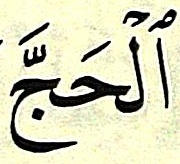 ٱلْحَجَّ